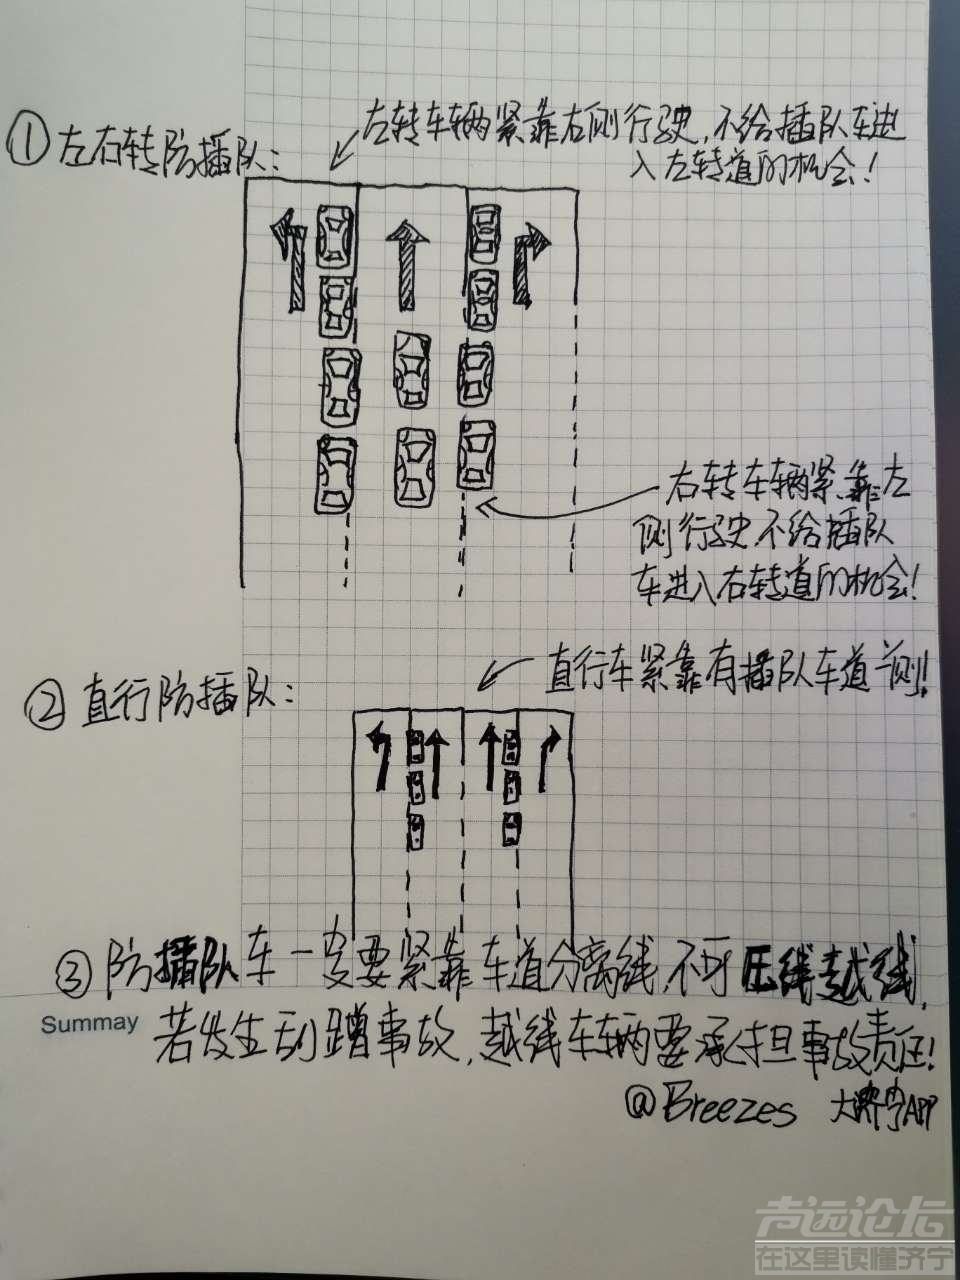 ①左右转防插队：
左转车辆紧靠右侧行驶，不给插队车进
入左转道的机会！
右转车辆紧靠左
侧行驶不给插队
车进入右转道的机会！
②直行防插队：
直行车紧靠有插队车道一侧！
③防插队车一定要紧靠车道分离线，不可压线越线，
Summay
若发生刮蹭事故，越线车辆要承担事故责任！
@Breezes 大济宁APP
声远论坛
在这里读懂济宁